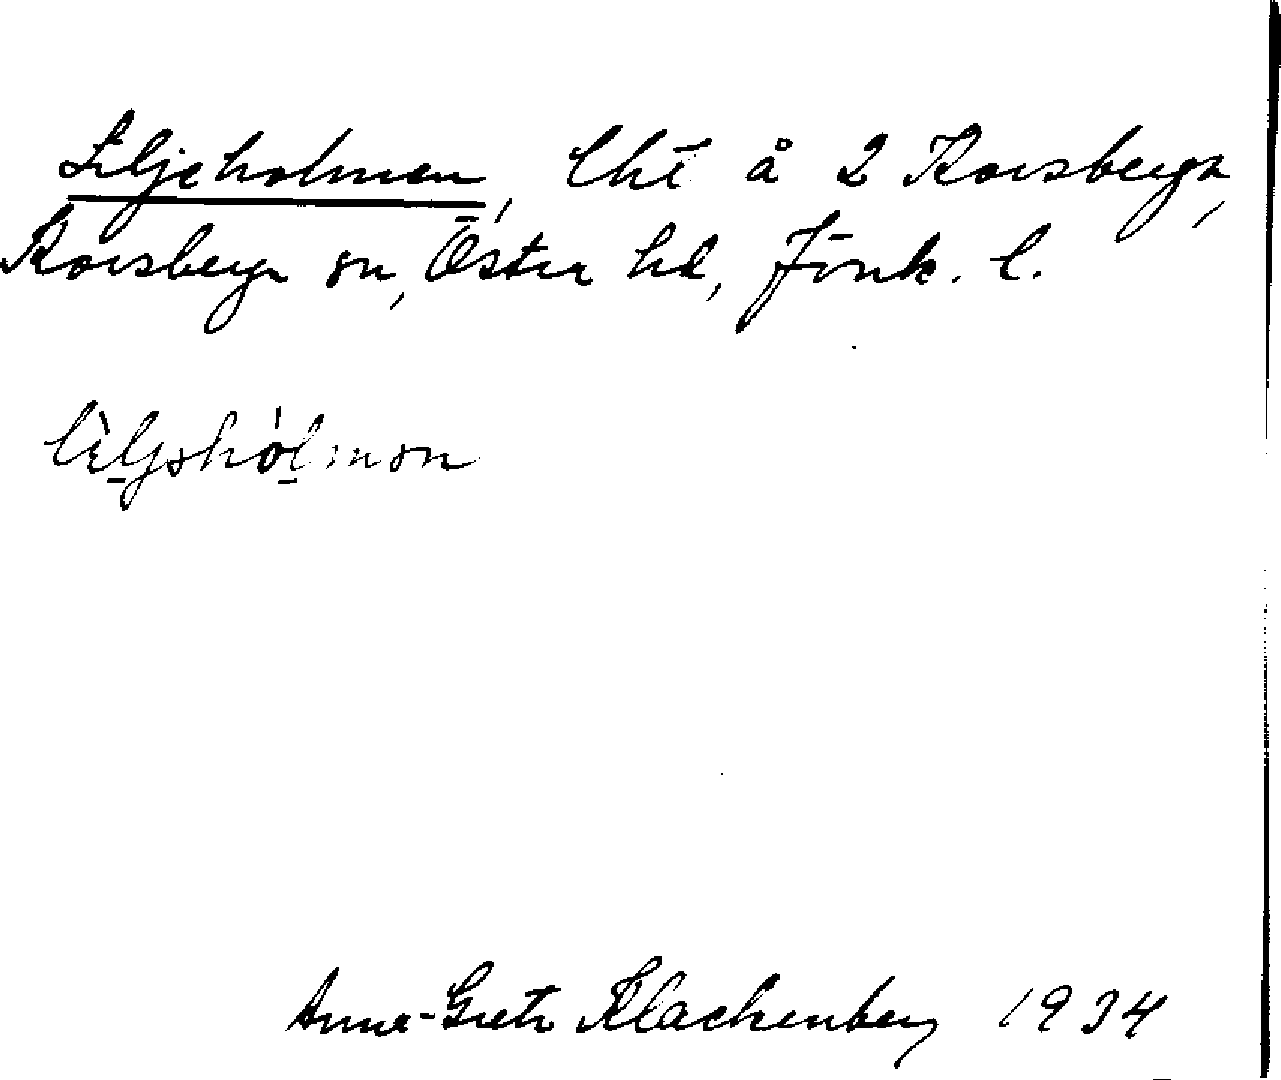 Liljeholmen, lht å 2 Korsberga,
Korsberga sn, Östra hd, Jönk. l.
Anna-Greta Klackenberg 1934